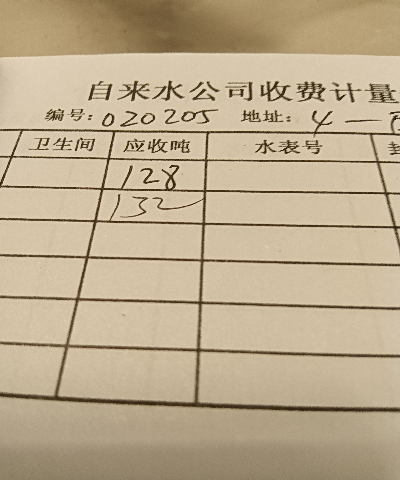 自来水公司收费计量
编号: 020205 地址: 4 一
卫生间 应收吨 水表号
128
132